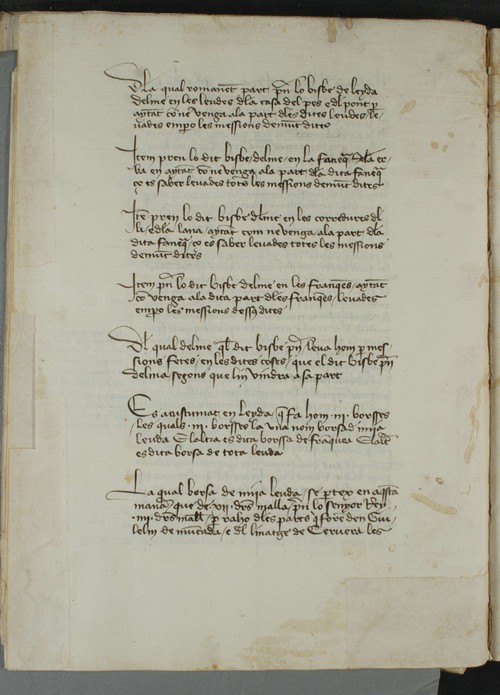 Dla qual romanēt part pn̄ lo bisbe de leyda
delme en les leudes dla casa del pes e dl pont p
aytāt cō ne venga ala part dles dites leudes le-
vades empo les messions demūt dites
Item pren lo dit bisbe delme en la faneq̄ dla er-
ba en aytāt cō ne venga ala part dla dita faneq̄
ço es saber levades totes les messions demūt dites
Itē pren lo dit bisbe dlme en les corredures dl
li e dla lana aytāt com ne venga ala part dla
dita faneq̄ ço es saber levades totes les messions
demūt dites
Item pn̄ lo dit bisbe delme en les franqes aytāt
cō venga ala dita part dles franq̄s levades
empo les messions dessꝰ dites
Dl qual delme ql̄ dit bisbe pn̄ leva hom p mes-
sions fetes en les dites coses que el dit bisbe pn̄
delma segons que lin vindra a sa part
Es acustumat en leyda q̄ fa hom .iii. borsses
les quals .iii. borsses la una nom borsa d mija
leuda Elaltra es dita borssa de fraquea Elalt̄
es dita borsa de tota leuda
La qual borsa de mija leuda se ptex en aq̄sta
manā que de .vii. drs malla pn̄ lo senyor Rey
.iiii. drs mall p raho dles parts q̄ foren den Gui-
lelm de mūcada e dl linatge de Cervera les